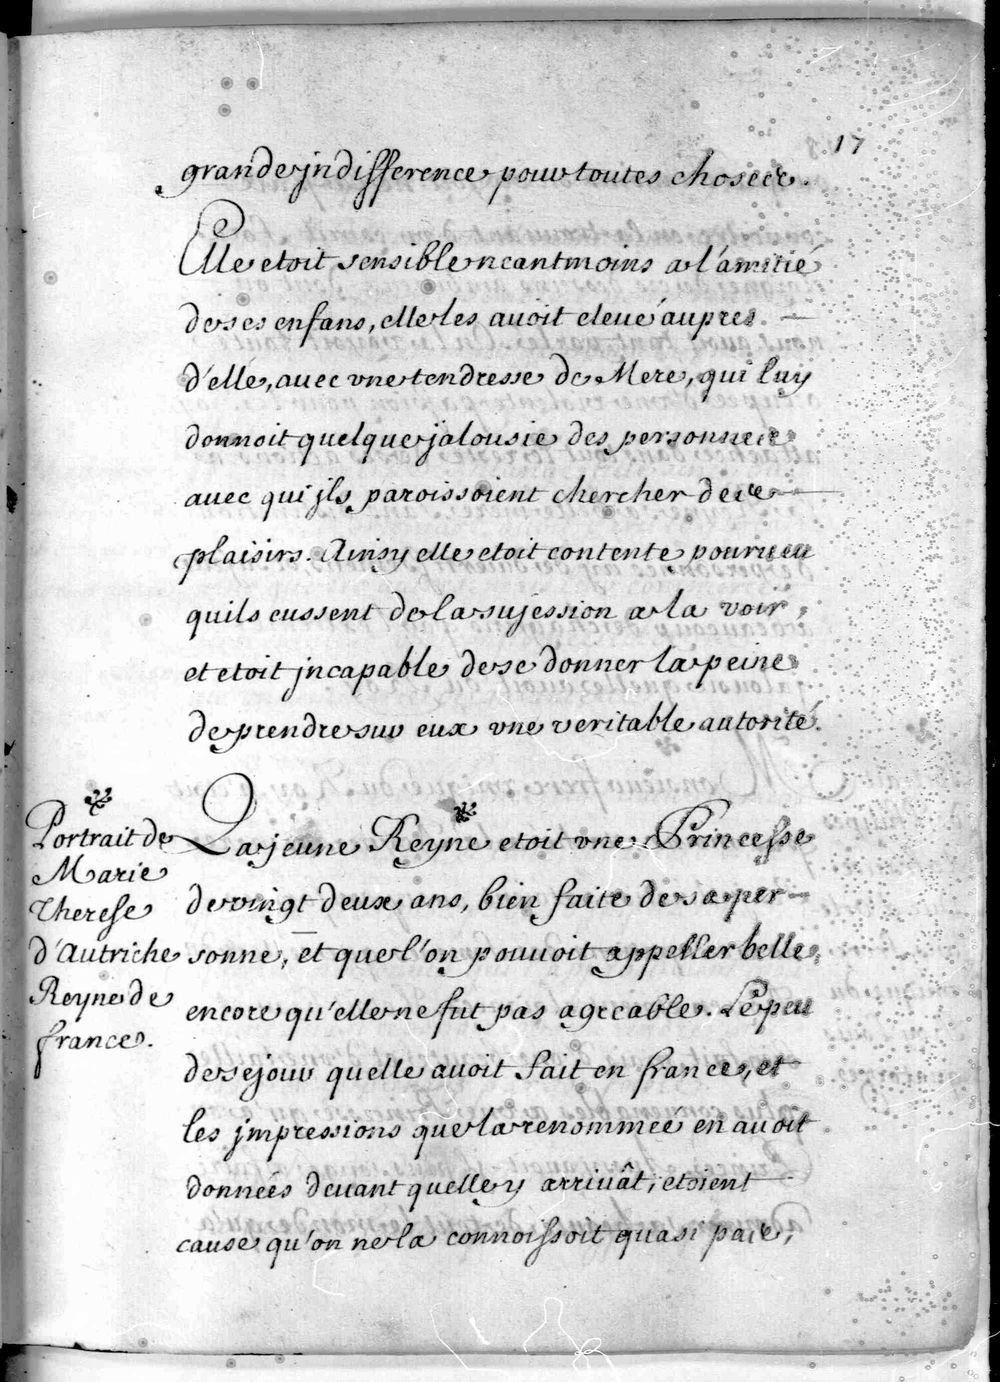 17
grande jndifference pour toutes choses.
Elle etoit sensible neantmoins a l'amitié
de ses enfans, elle les avoit eleué áupres
d'elle, auec vne tendresse de Mere, qui luy
donnoit quelque jalousie des personnes
auec qui jls paroissoient chercher des
plaisirs. Ainsy elle etoit contente pourueu
quils eussent de la sujession a la voir
et etoit jncapable de se donner la peine
de prendre sur eux vne veritable autorité.
Portrait de
Marie
Therese
d'Autriche
Reyne de
france.
La jeune Reyne etoit vne Princesse
de vingt deux ans, bien faite de sa per-
sonne, et que l'on pouuoit appeller belle
encore qu'elle ne fut pas agreable. Le peu
de sejour quelle auoit fait en france, et
les jmpressions que la renommée en auoit
donneés deuant quelle y arriuât, etoient
cause qu'on ne la connoissoit quasi pas,